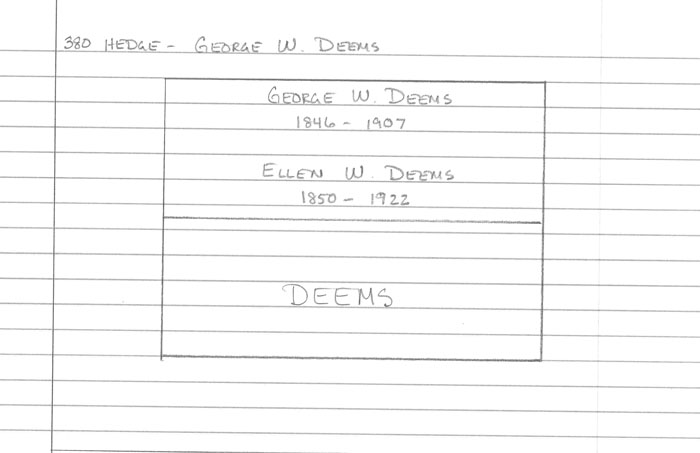 380 HEDGE - GEORGE W. DEEMS
GEORGE W. DEEMS
1846 - 1907
ELLEN W. DEEMS
1850 - 1922
DEEMS